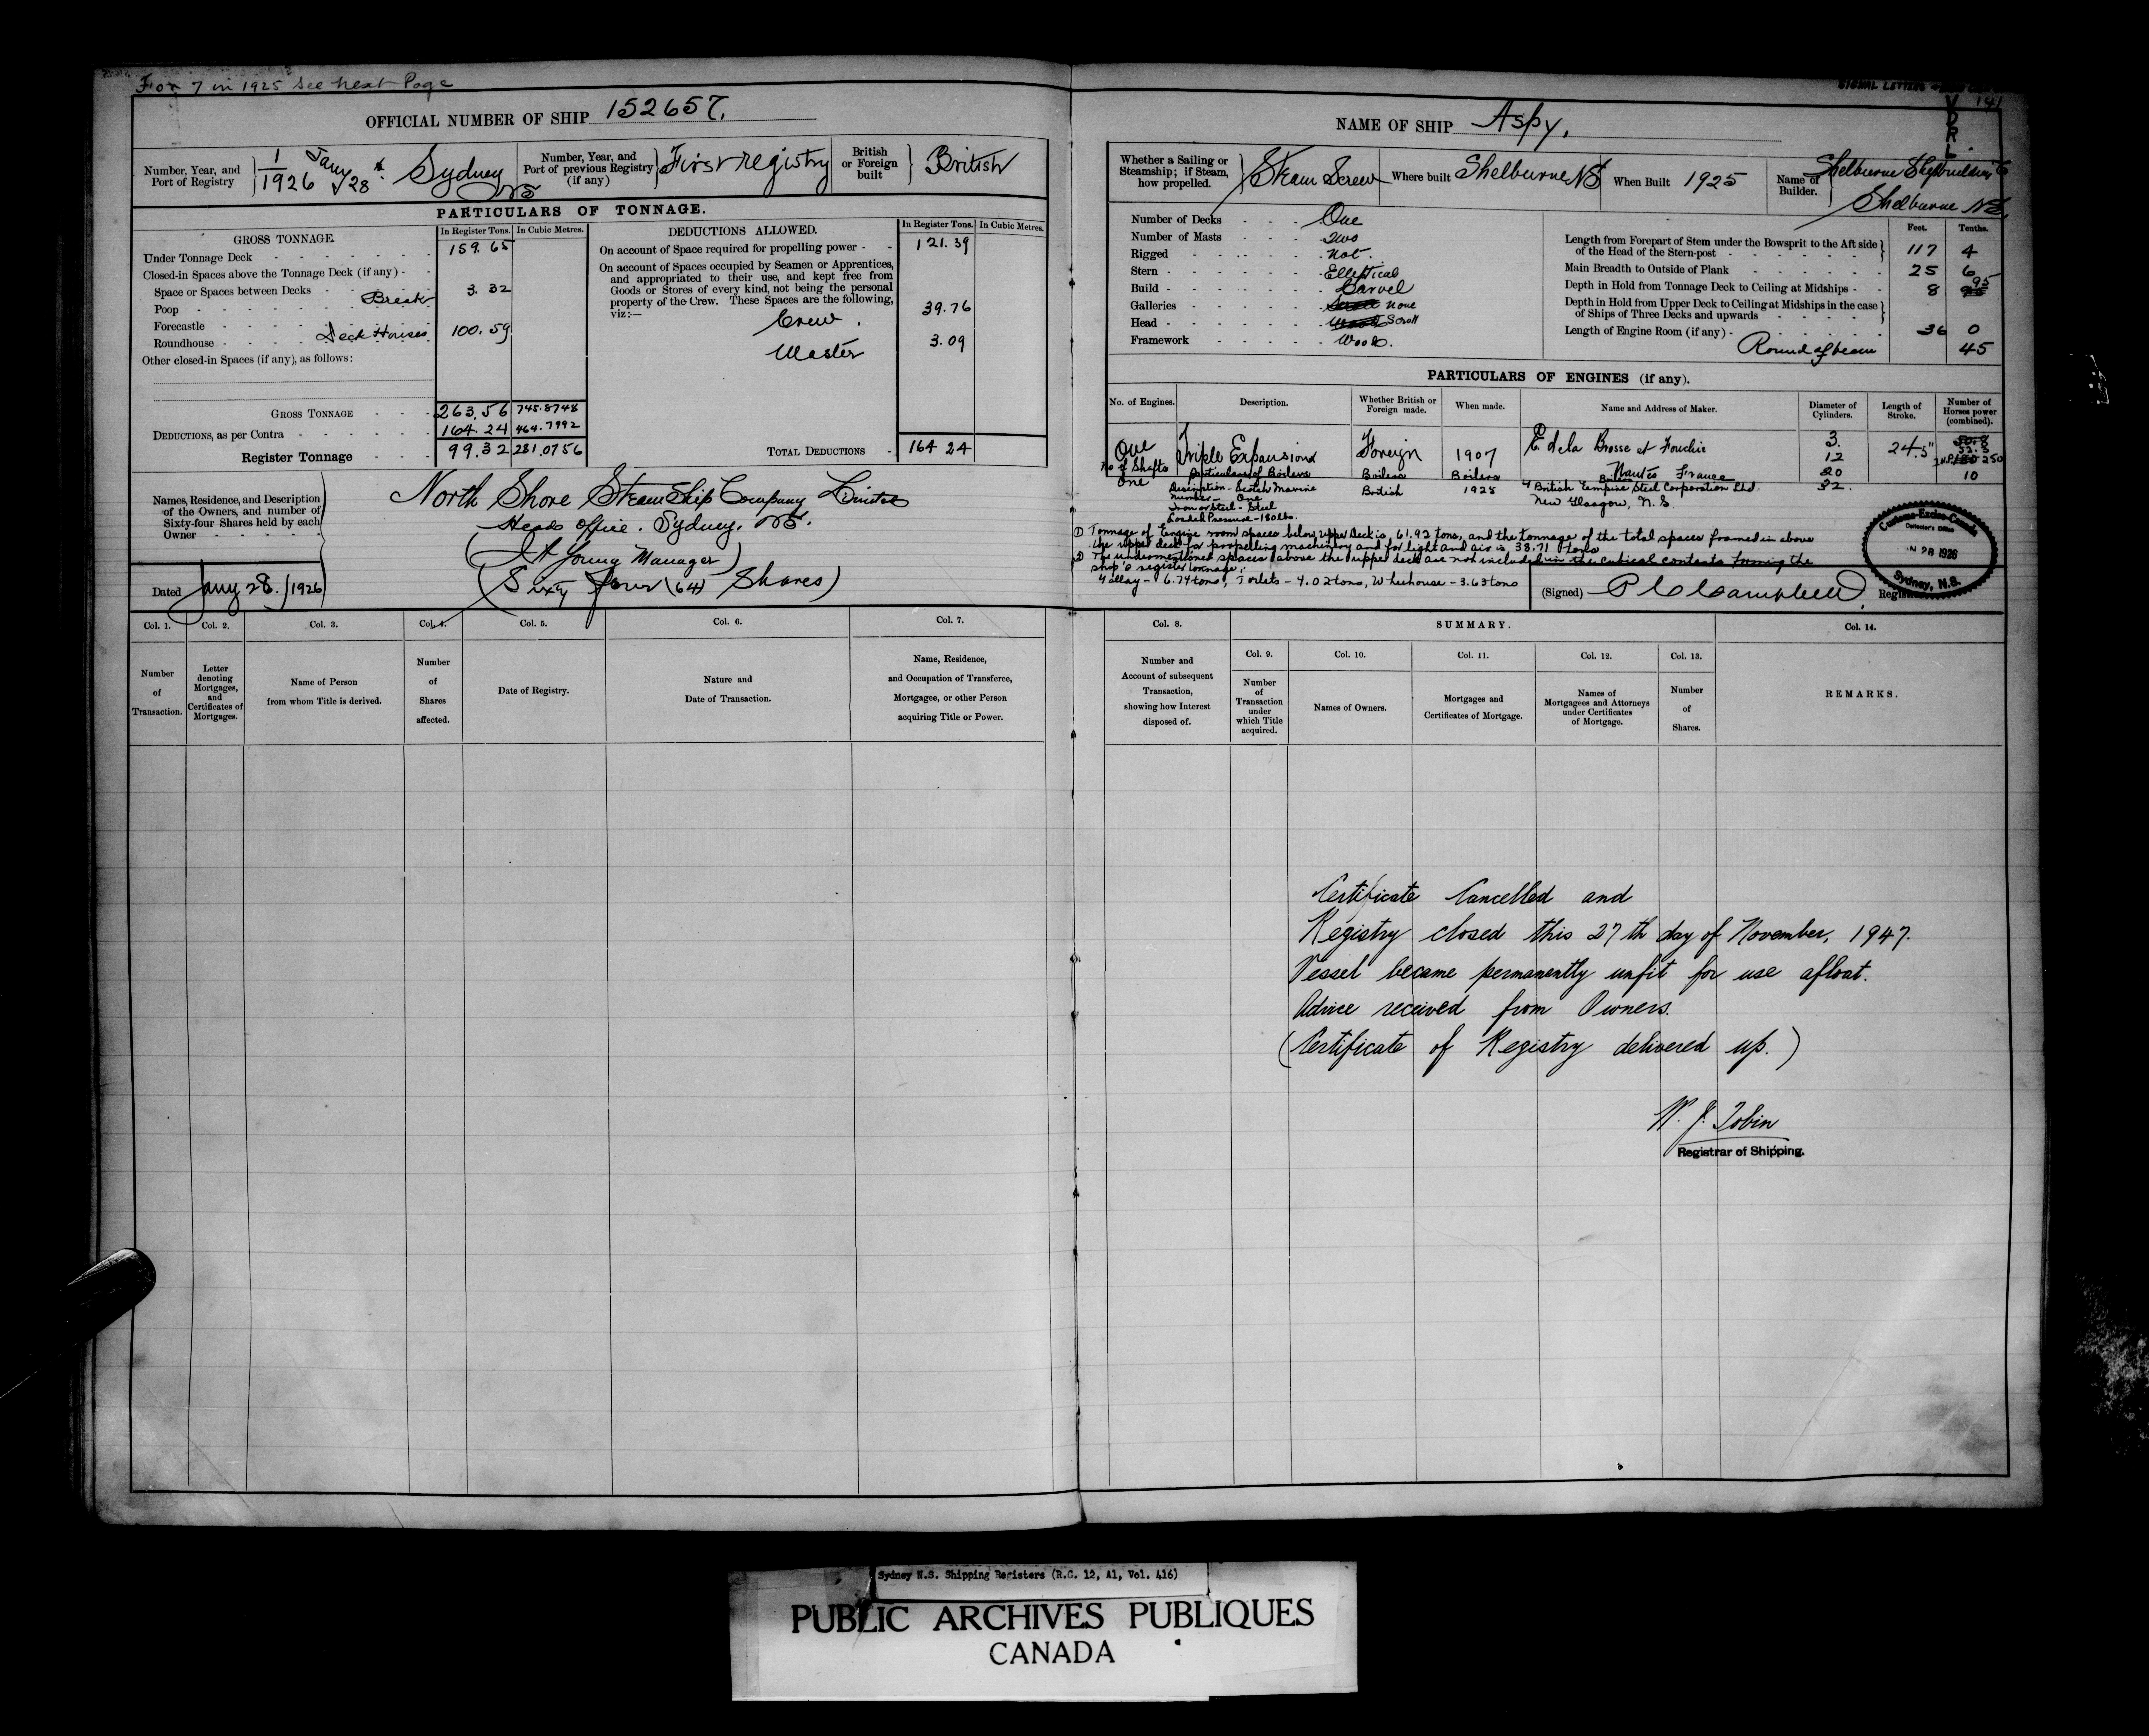 For 7 in 1925 see next Page
OFFICIAL NUMBER OF SHIP 152657.
Number, Year, and Port of Registry 1/1926 Jany 28 Sydney NS
Number, Year, and Port of previous Registry (if any) First registry
British or Foreign built British
PARTICULARS OF TONNAGE.
GROSS TONNAGE. In Register Tons. In Cubic Metres.
Under Tonnage Deck 159.65
Closed-in Spaces above the Tonnage Deck (if any)
Space or Spaces between Decks
Break 3.32
Poop
Forecastle
Roundhouse Deck Houses 100.59
Other closed-in Spaces (if any), as follows:
GROSS TONNAGE 263.56 745.8748
DEDUCTIONS, as per Contra 164.24 464.7992
Register Tonnage 99.32 281.0756
DEDUCTIONS ALLOWED. In Register Tons. In Cubic Metres.
On account of Space required for propelling power 121.39
On account of Spaces occupied by Seamen or Apprentices,
and appropriated to their use, and kept free from
Goods or Stores of every kind, not being the personal
property of the Crew. These Spaces are the following,
viz:—
Crew. 39.76
Master 3.09
TOTAL DEDUCTIONS 164 24
Names, Residence, and Description
of the Owners, and number of
Sixty-four Shares held by each
Owner
North Shore SteamShip Company Limited
Head Office. Sydney. NS.
(Young Manager)
(Sixty four (64) Shares)
Dated Jany 28. /1926
Col. 1. Col. 2. Col. 3. Col. 4. Col. 5. Col. 6. Col. 7.
Number of Transaction.
Letter denoting Mortgages, and Certificates of Mortgages.
Name of Person from whom Title is derived.
Number of Shares affected.
Date of Registry.
Nature and Date of Transaction.
Name, Residence, and Occupation of Transferee, Mortgagee, or other Person acquiring Title or Power.
SIGNAL LETTERS
VDRL
141
NAME OF SHIP Aspy.
Whether a Sailing or Steamship; if Steam, how propelled. Steam Screw
Where built Shelburne NS
When Built 1925
Name of Builder. Shelburne Shipbuilders
Shelburne NS.
Number of Decks One
Number of Masts Two
Rigged Not.
Stern Elliptical
Build Carvel
Galleries None
Head Scroll
Framework Wood.
Feet. Tenths.
Length from Forepart of Stem under the Bowsprit to the Aft side of the Head of the Stern-post 117 4
Main Breadth to Outside of Plank 25 6
Depth in Hold from Tonnage Deck to Ceiling at Midships 8 95
Depth in Hold from Upper Deck to Ceiling at Midships in the case of Ships of Three Decks and upwards
Length of Engine Room (if any) 36 0
Round of beam 45
PARTICULARS OF ENGINES (if any).
No. of Engines. Description. Whether British or Foreign made. When made. Name and Address of Maker. Diameter of Cylinders. Length of Stroke. Number of Horses power (combined).
One Triple Expansion Foreign 1907 E de la Brosse et Fouché 3. 12 20 32. 24.5" 250 10
Nantes France
No of Shafts One
Particulars of Boilers Boilers Boilers Boilers
Description - Scotch Marine British 1925 British Empire Steel Corporation Ltd.
Number - One New Glasgow, N.S.
Iron or Steel - Steel
Loaded Pressure - 180 lbs.
① Tonnage of Engine room spaces below upper Deck is 61.92 tons, and the tonnage of the total spaces framed in above
the upper deck for propelling machinery and for light and air is 38.71 tons
② The undermentioned spaces above the upper deck are not included in the cubical contents forming the
ship's register tonnage:
Galley - 6.74 tons, Toilets - 4.02 tons, Wheelhouse - 3.63 tons
Customs-Excise-Canada
Collector's Office
28 1926
Sydney, N.S.
(Signed) P C Campbell, Registrar
Col. 8. SUMMARY. Col. 14.
Col. 9. Col. 10. Col. 11. Col. 12. Col. 13.
Number and Account of subsequent Transaction, showing how Interest disposed of.
Number of Transaction under which Title acquired.
Names of Owners.
Mortgages and Certificates of Mortgage.
Names of Mortgagees and Attorneys under Certificates of Mortgage.
Number of Shares.
REMARKS.
Certificate Cancelled and
Registry closed this 27th day of November, 1947.
Vessel became permanently unfit for use afloat.
Advice received from Owners.
(Certificate of Registry delivered up.)
W. J. Tobin
Registrar of Shipping.
Sydney N.S. Shipping Registers (R.G. 12, A1, Vol. 416)
PUBLIC ARCHIVES PUBLIQUES
CANADA